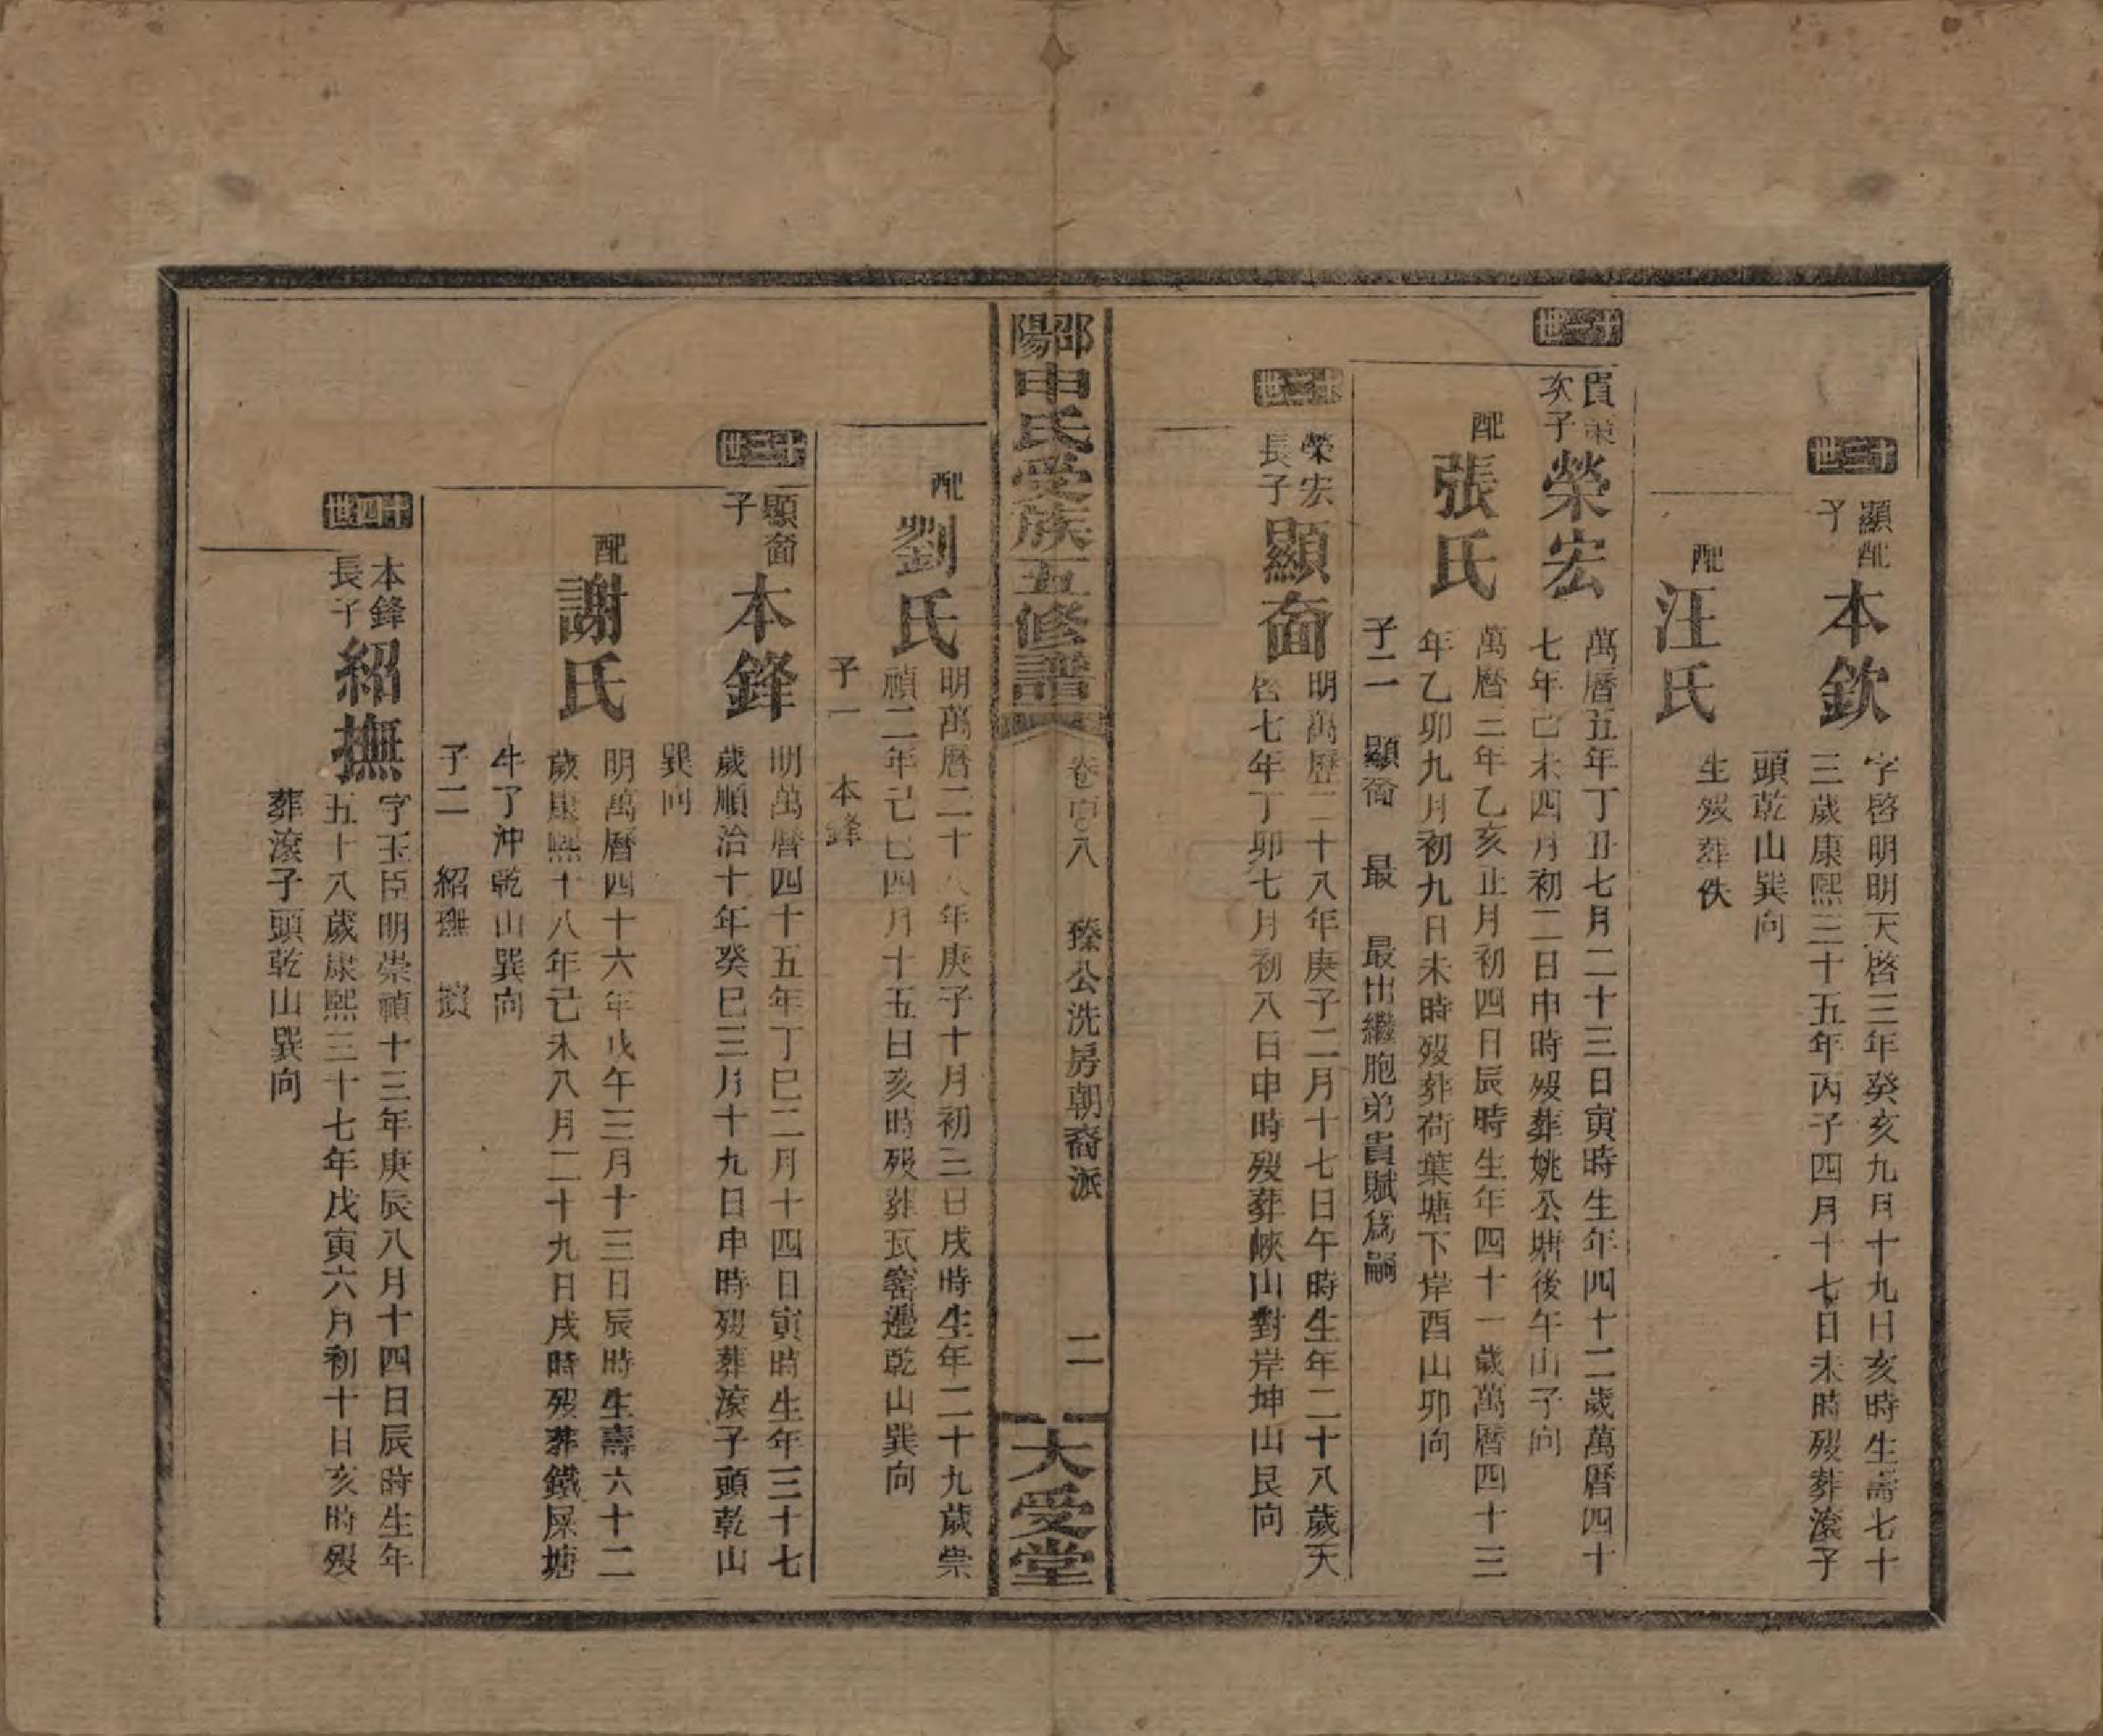 十三世
顯配
子
本欽
字啓明明天啓三年癸亥九月十九日亥時生壽七十
三歲康熙三十五年丙子四月十七日未時歿葬滾子
頭乾山巽向
配
汪氏
生歿葬佚
十一世
貴策
次子
榮宏
萬曆五年丁丑七月二十三日寅時生年四十二歲萬曆四十
七年己未四月初二日申時歿葬姚公塘後午山子向
配
張氏
萬曆三年乙亥正月初四日辰時生年四十一歲萬曆四十三
年乙卯九月初九日未時歿葬荷葉塘下岸酉山卯向
子二 顯奝 最 最出繼胞弟貴賦為嗣
十二世
榮宏
長子
顯奝
明萬歷二十八年庚子二月十七日午時生年二十八歲天
啓七年丁卯七月初八日申時歿葬峽山對岸坤山艮向
邵陽申氏受族五修譜
卷百○八 臻公洗房朝裔派
二
大受堂
配
劉氏
明萬曆二十八年庚子十月初三日戌時生年二十九歲崇
禎二年己巳四月十五日亥時歿葬瓦窰邊乾山巽向
子一 本鋒
十三世
顯奝
子
本鋒
明萬曆四十五年丁巳二月十四日寅時生年三十七
歲順治十年癸巳三月十九日申時歿葬滾子頭乾山
巽向
配
謝氏
明萬曆四十六年戊午三月十三日辰時生壽六十二
歲康熙十八年己未八月二十九日戌時歿葬鐵屎塘
牛丫沖乾山巽向
子二 紹撫
十四世
本鋒
長子
紹撫
字玉臣明崇禎十三年庚辰八月十四日辰時生年
五十八歲康熙三十七年戊寅六月初十日亥時歿
葬滾子頭乾山巽向